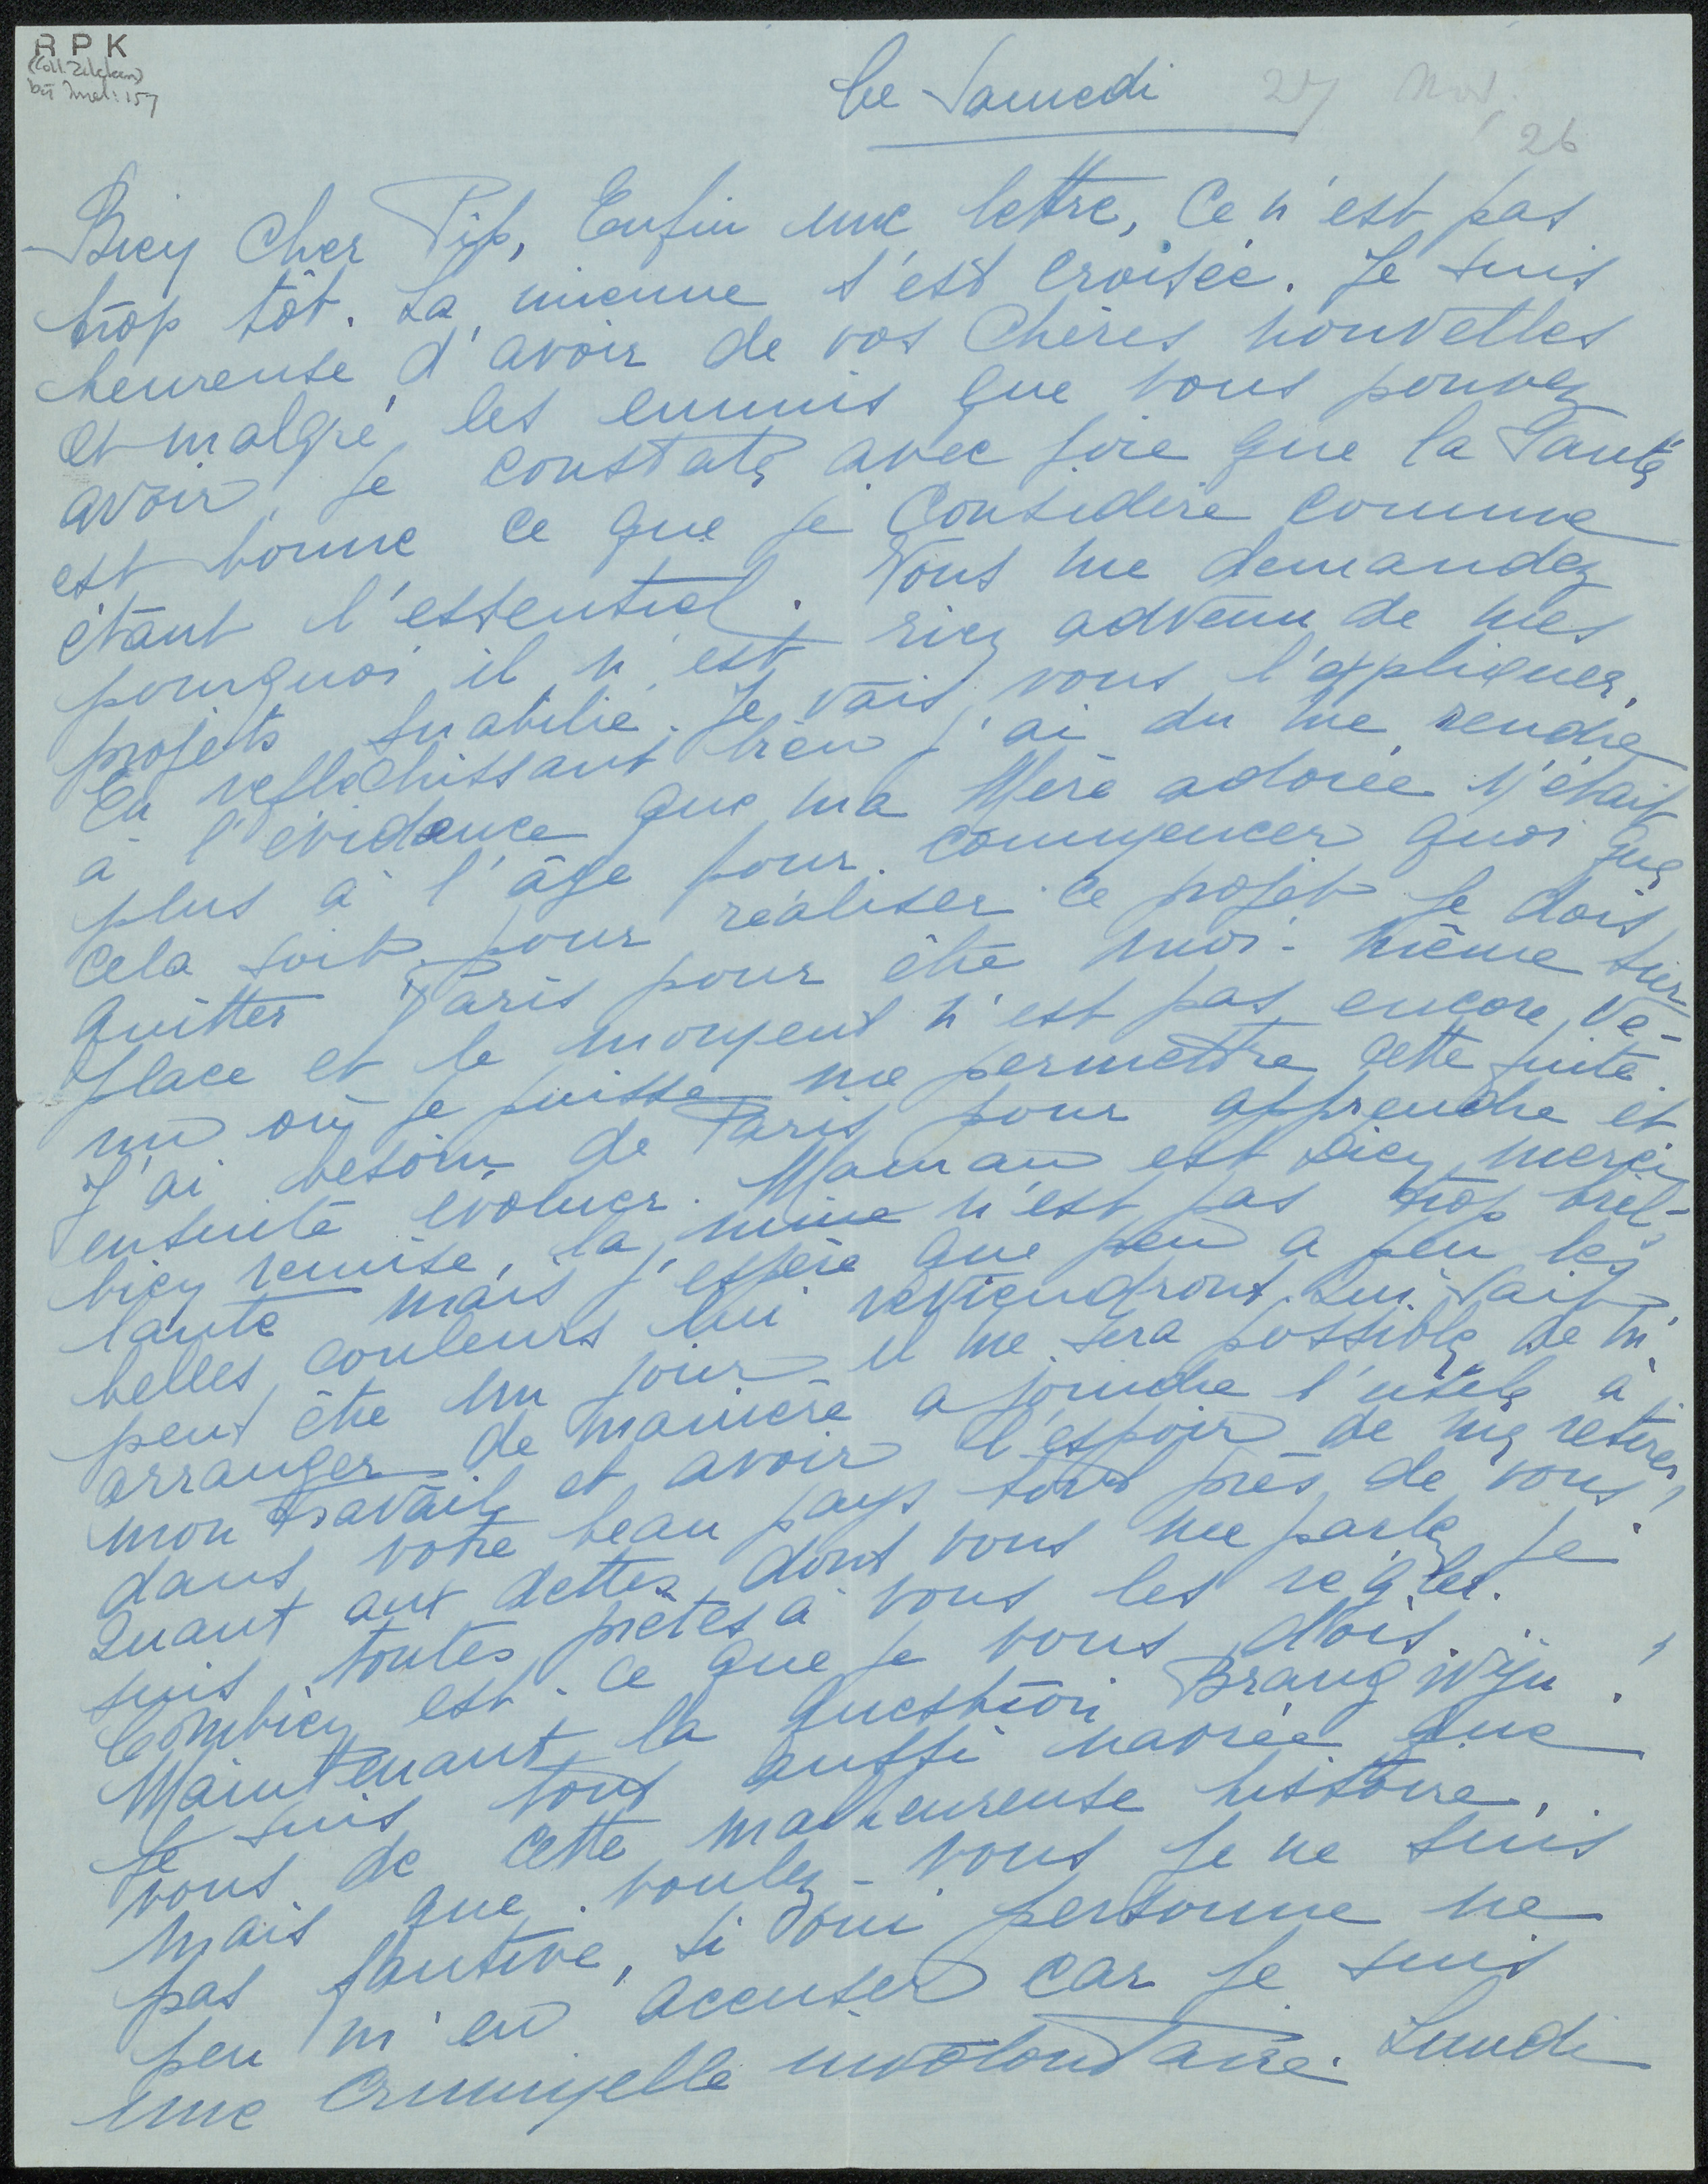 R P K
(Coll. Zilcken)
bij Inv: 157
Ce Samedi 27 Nov.
26
Bien Cher Pip, Enfin une lettre, Ce n'est pas
trop tôt. La mienne s'est croisée. Je suis
heureuse d'avoir de vos Chères nouvelles
et malgré les ennuis que vous pouvez
avoir, je constate avec joie que la Santé
est bonne ce que je Considère comme
étant l'essentiel. Vous me demandez
pourquoi il n'est rien advenu de mes
projets Je vais vous l'expliquer.
En reflechissant bien j'ai du me rendre
à l'évidence que ma Mère adorée n'était
plus à l'âge pour commencer quoi que
cela soit pour réaliser ce projet je dois
quitter Paris pour être moi-même sur
place et le moment n'est pas encore ve-
nu où je puisse me permettre cette fuite.
J'ai besoin de Paris pour apprendre et
ensuite évoluer. Maman est bien merci
bien remise, la mine n'est pas trop bril-
lante mais j'espère que peu a peu les
belles couleurs lui reviendront. Qui sait
peut être un jour il me sera possible de m'
arranger de manière a joindre l'utile à
mon travail et avoir l'espoir de me retirer
dans votre beau pays tout près de vous!
Quant aux dettes dont vous me parlez je
suis toutes prètes à vous les régler.
Combien est-ce que je vous dois.
Maintenant la question Brangwijn!
Je suis tout aussi navrée que
vous de cette malheureuse histoire,
mais que voulez-vous je ne suis
pas fautive, si oui personne ne
peu m'en accuser car je suis
une Criminelle involontaire. Lundi